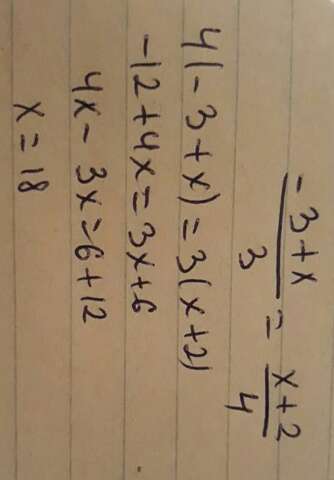 -3+x/3 = x+2/4
4(-3+x)=3(x+2)
-12+4x=3x+6
4x-3x=6+12
x=18